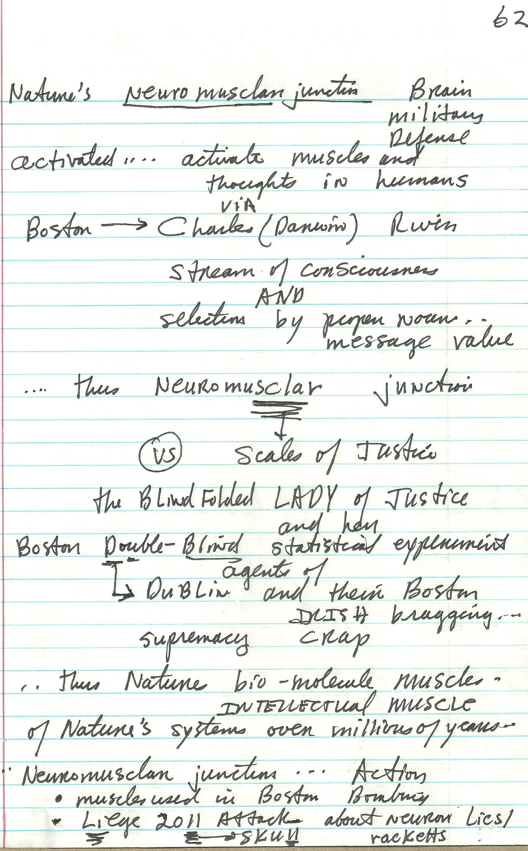 62
Nature's Neuromusclar junction Brain
military
Defense
activated.... activate muscles and
thoughts in humans
VIA
Boston → Charles (Darwin) River
stream of consciousness
AND
selection by proper noun..
message value
.... thus Neuromusclar junction
VS Scales of Justice
the Blind Folded LADY of Justice
and her
Boston Double-Blind statistical experiment
agents of
DuBLin and their Boston
IRISH bragging...
supremacy CRAP
.. thus Nature bio-molecule muscles -
INTELLECTUAL MUSCLE
of Nature's systems over millions of years
Neuromusclar junction ... Action
• muscles used in Boston Bombing
• Liege 2011 Attack about Neuron Lies/
→ SKUll racketts